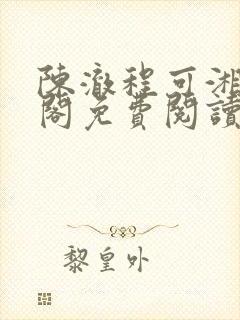 陳澈程可湘
閣免費閱讀
黎皇外